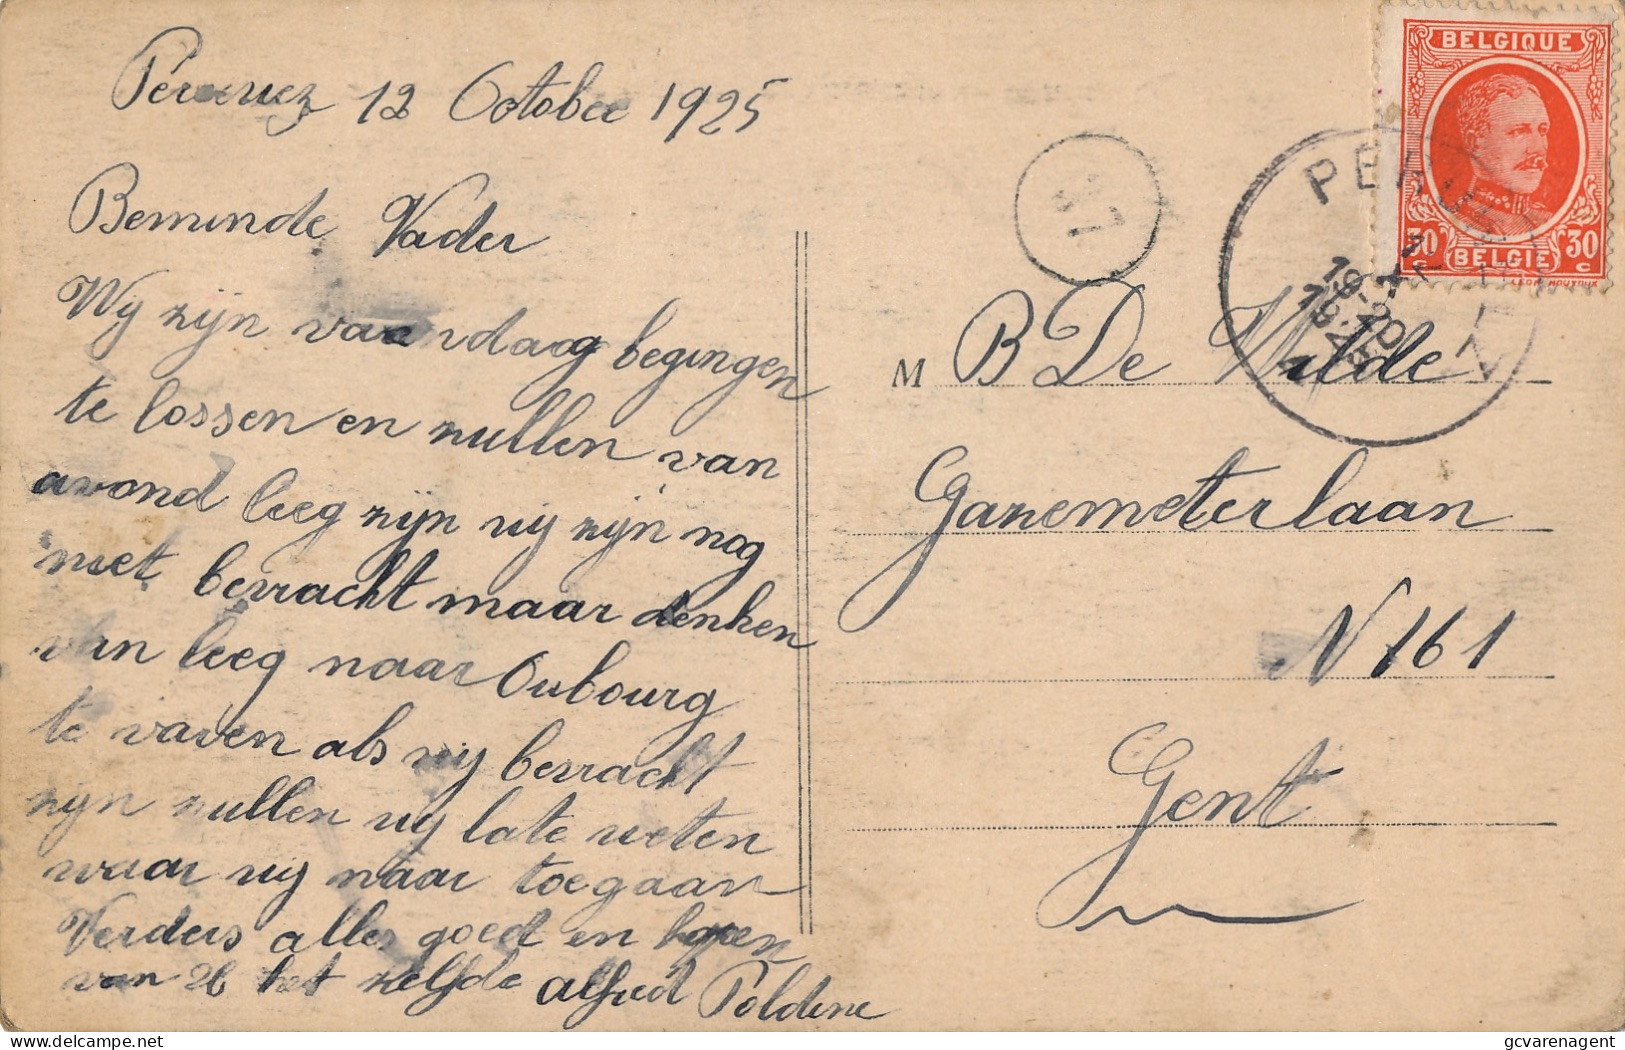 Peruwez 12 Octobee 1925
Beminde Vader
Wy zijn van vdaag begingen
te lossen en zullen van
avond leeg zijn wy zijn nog
niet bevracht maar denken
van leeg naar Oubourg
te varen als wy bevracht
zijn zullen wy late weten
waar wy naar toegaan
Verders alles goed en hopen
van U het zelfde Alfred Poldine
BELGIQUE
30 30
c BELGIE c
PERUWELZ
19-20
M B De Wilde
Gazemeterlaan
N 161
Gent
gcvarenagent